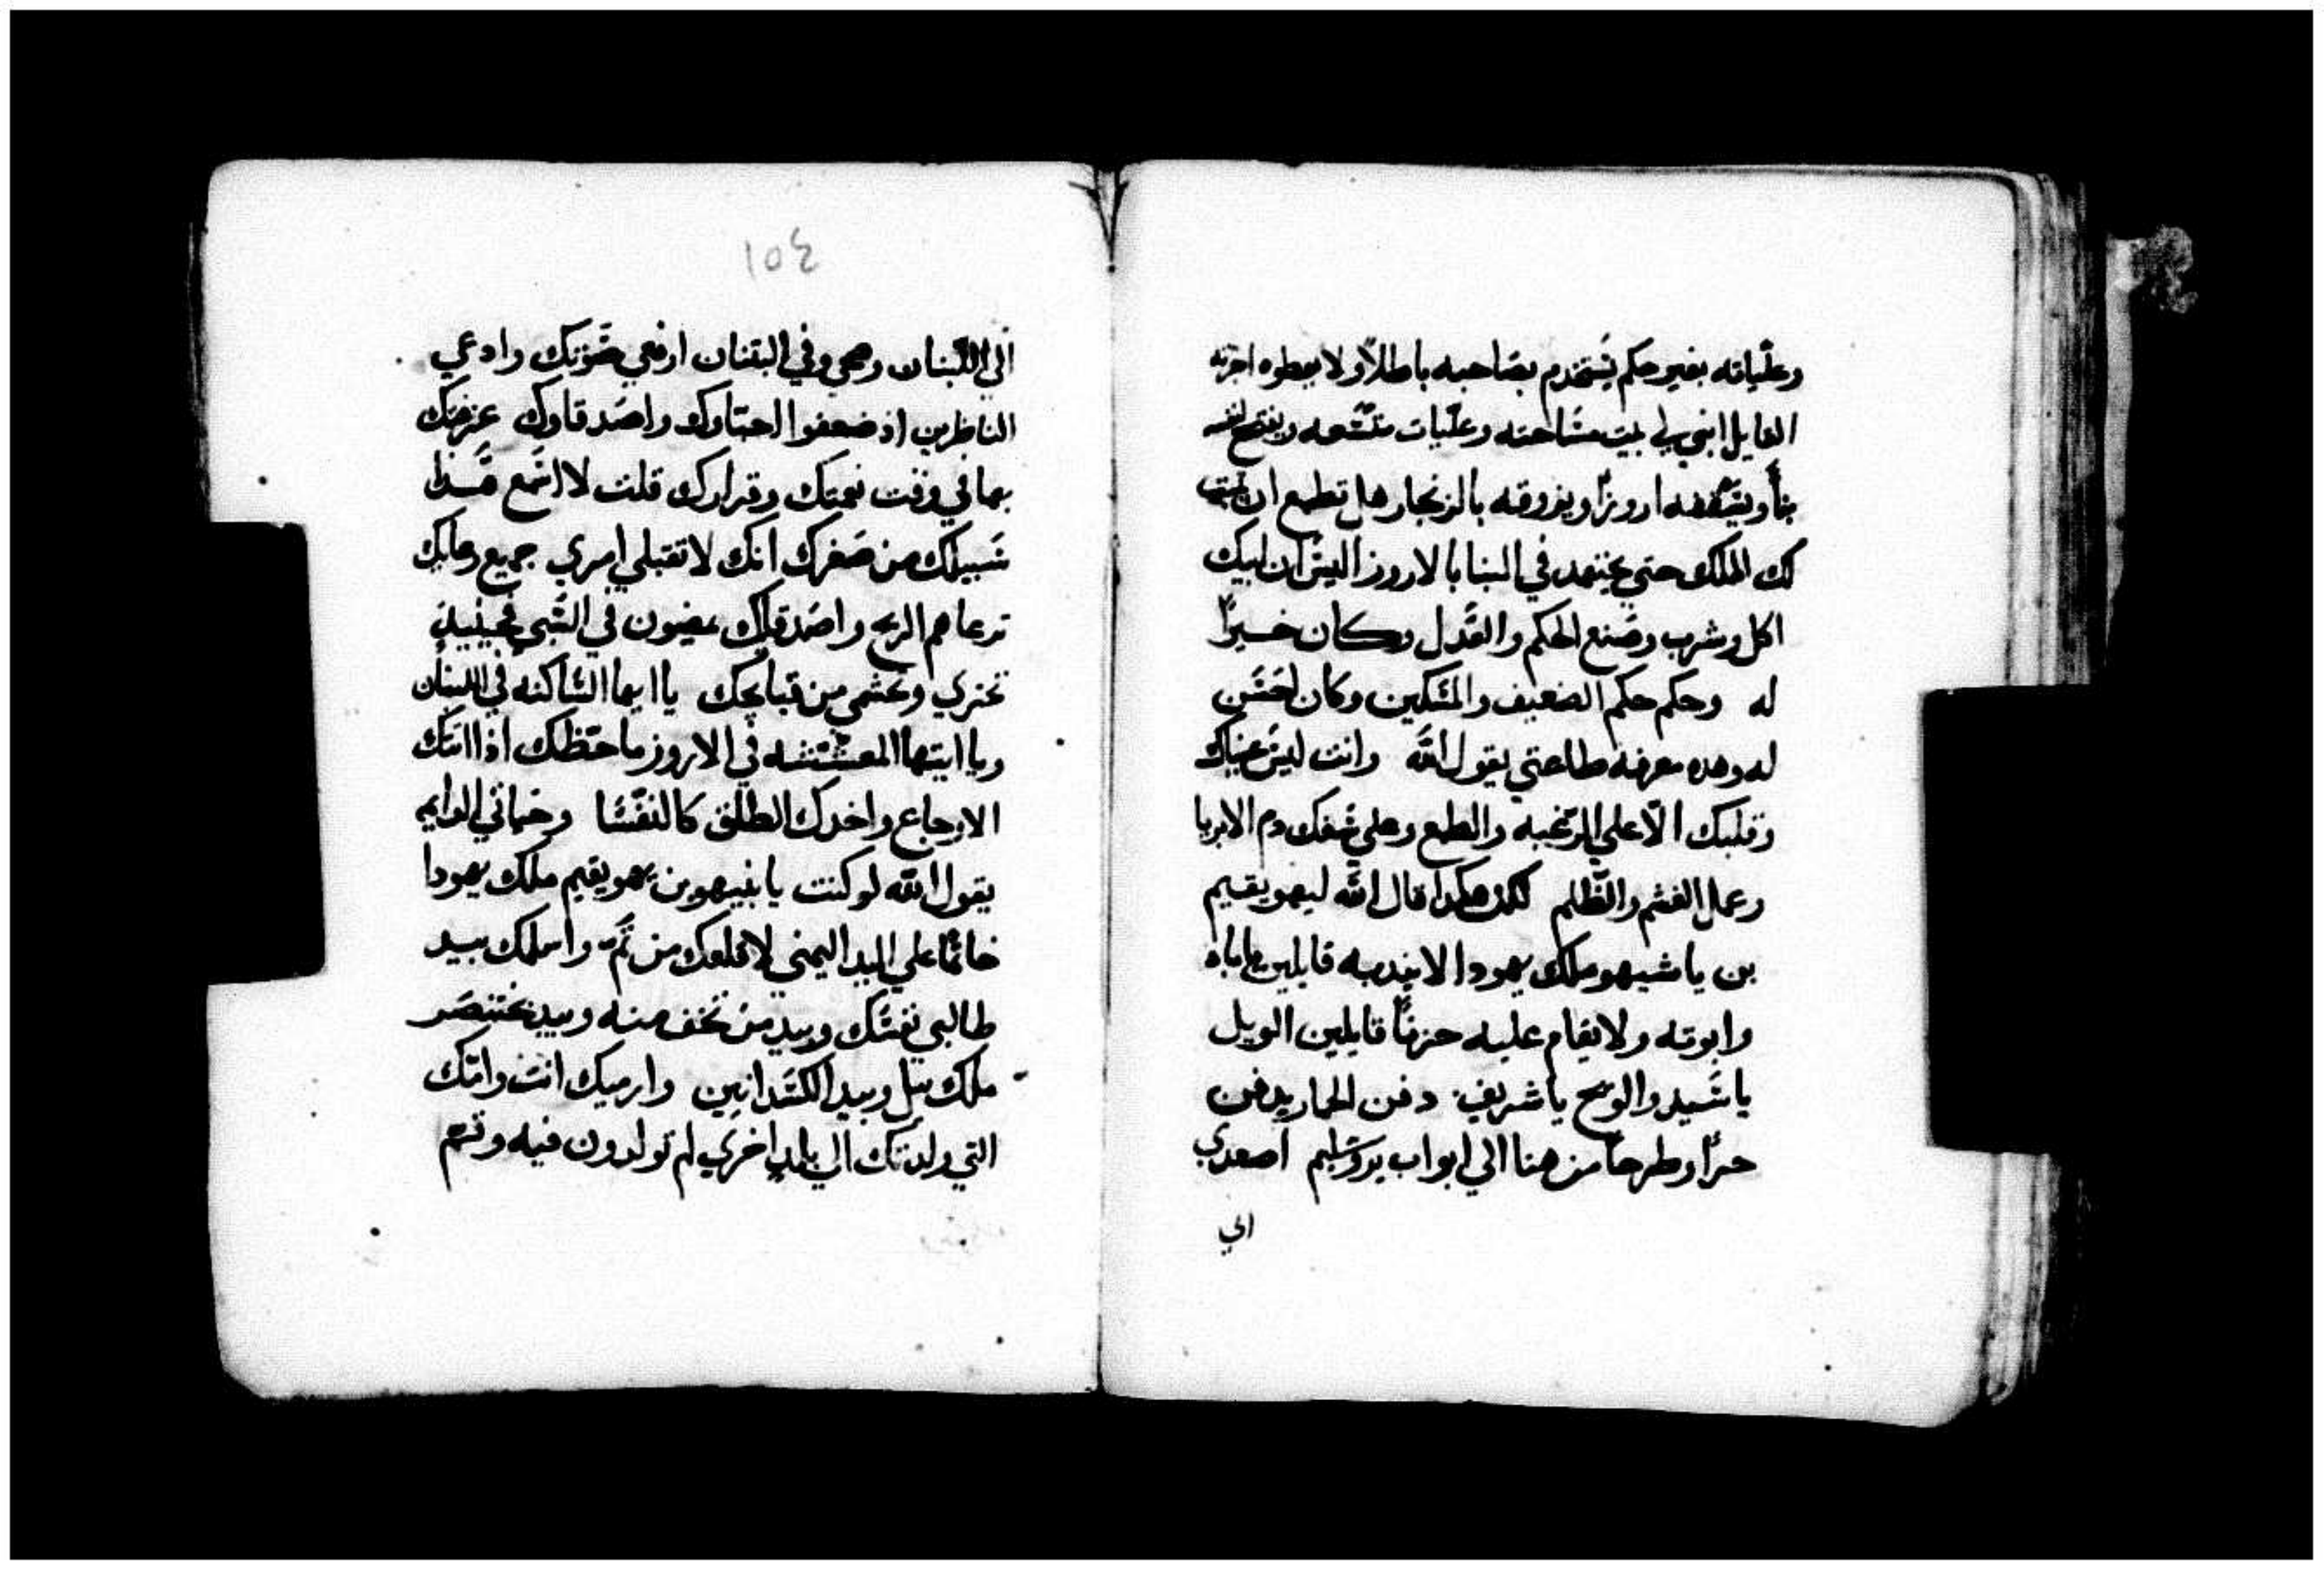 وعليَّاته بغير حكم يُستخدم بصَاحبه باطلاً ولا يعطوه اجرته
القايل ابني لي بيت مسَاحته وعليَّات متسَّعه ويفتح لنفسه
بناً ويسَقفه اروزًا ويزوقه بالزنجار هل تطمع ان
لك الملك حتي تجتهد في البنا بالاروز اليسَ ان ابيك
اكل وشرب وصَنع الحكم والعَدل وكان خيرًا
له وحكم حكم الضعيف والمسَكين وكان احسَن
له وهده معرفة طاعتي يقول الله وانت ليسَ عيناك
وقلبك الّا علي الرغبه والطمع وعلي سَفك دم الابريا
وعمل الغشم والظّلم لكن هكدا قال الله ليهويقيم
بن ياشيهو ملك يهودا لا يندبه قايلين يا اباه
وابوته ولا يقام عليه حزنًا قايلين الويل
يا سَيد والويح يا شريف دفن الحمار يدفن
جرًا وطرحًا من هنا الي ابواب يروشَليم اصعدي
الي
الي اللّبنان وصحي وفي البتنان ارفعي صَوتك وادعي
الناظرين اد ضعفوا احبّاوك واصَدقاوك عرضتك
بها في وقت نعمتك وقرارك قلت لا اسَمع هَدا
سَبيلك من صَغرك انك لا تقبلي امري جميع رعاتك
ترعاهم الريح واصَدقاك يمضون في السَّبي فحينيد
تخزي وتحتشمي من قبايحك يا ايها السَّاكنه في اللبنان
ويا ايتها المعششه في الاروز ما حَظك ادا اتتك
الاوجاع واخدك الطلق كالنفسَا وحياتي الدايمه
يقول الله لو كنت يا بنيهو بن يهويقيم ملك يهودا
خاتمًا علي اليد اليمني لاقلعك من ثَمّ واسلمك بيد
طالبي نفسَك وبيد من تخف منه وبيد بختنصَر
ملك ببل وبيد الكسَدانيين وارميك انت وامّك
التي ولدتك الي بلدٍ اخري لم تولدون فيه وثم